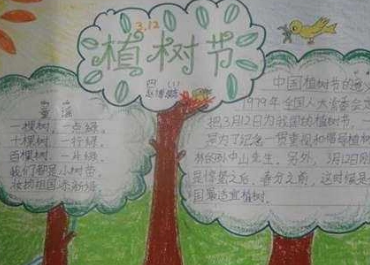 3.12
植树节
四（1）
童谣
一棵树，一点绿，
十棵树，一行绿，
百棵树，一片绿，
我们都是小树苗
妆扮祖国添新绿
中国植树节的意义
1979年全国人大常委会
把3月12日为我国的植树节，
是为了纪念一贯重视和倡导植树
的孙中山先生。另外，3月12日
是惊蛰之后，春分之前，这时候是
国最适宜植树。